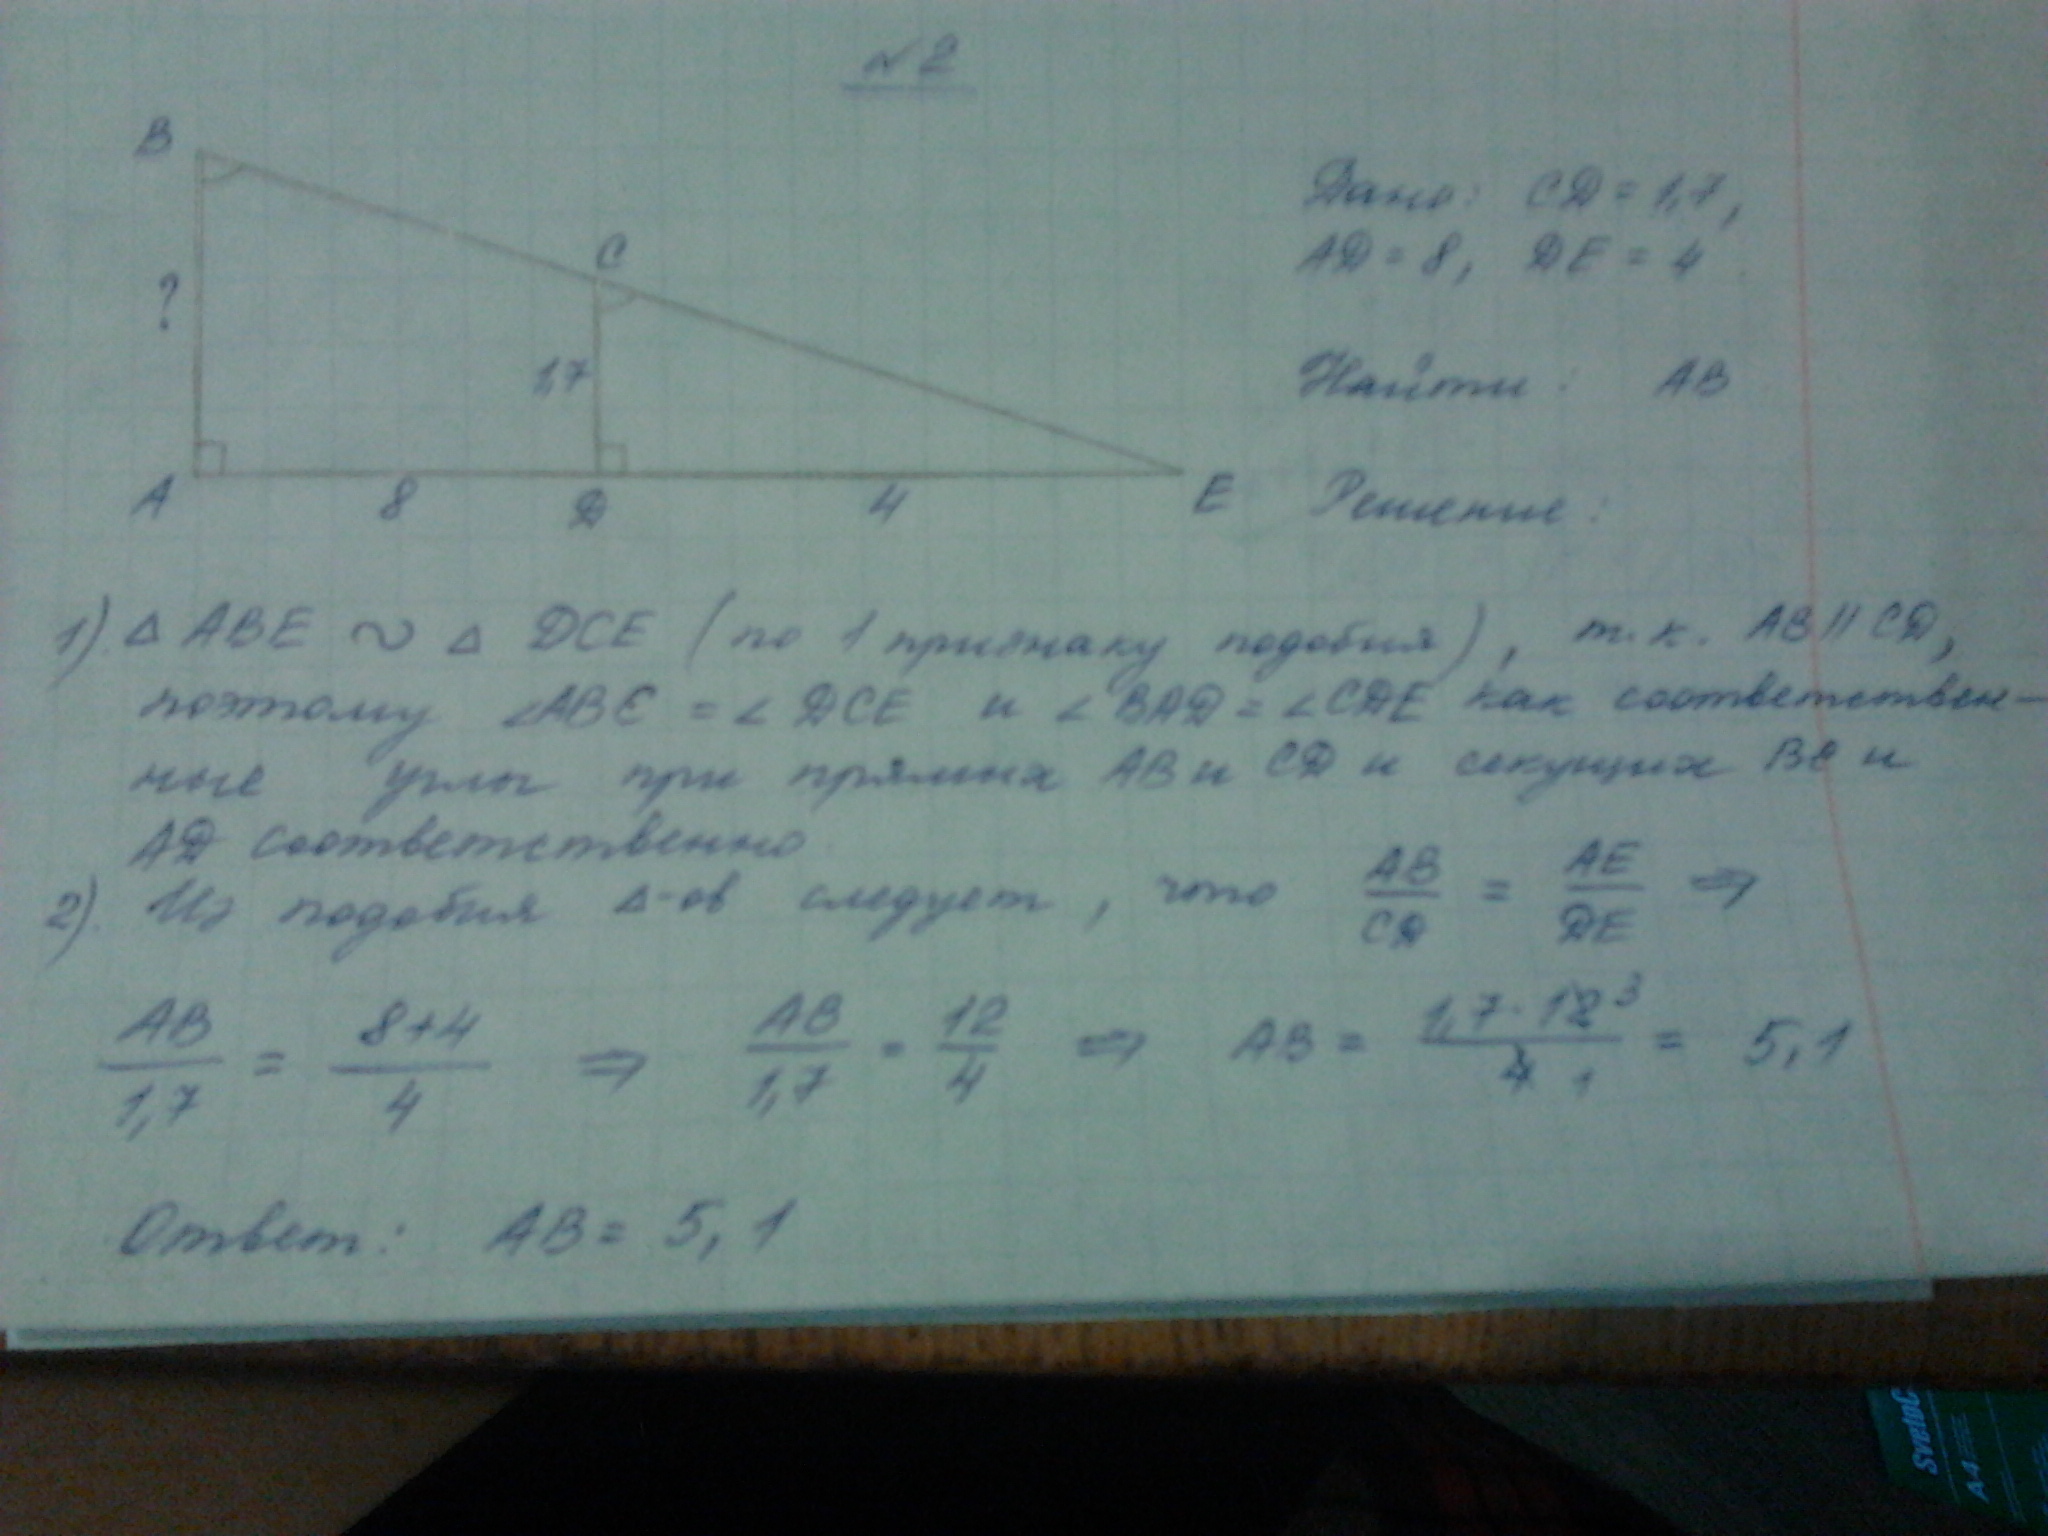 №2
B
C
?
1,7
A
8
D
4
E
Дано: CD = 1,7,
AD = 8, DE = 4
Найти: AB
Решение:
1). △ ABE ~ △ DCE (по 1 признаку подобия), т.к. AB || CD,
поэтому ∠ABC = ∠DCE и ∠BAD = ∠CDE как соответствен-
ные углы при прямых AB и CD и секущих BC и
AD соответственно.
2). Из подобия △-ов следует, что AB/CD = AE/DE ⇒
AB/1,7 = 8+4/4 ⇒ AB/1,7 = 12/4 ⇒ AB = 1,7·12 3/4 1 = 5,1
Ответ: AB = 5,1
SvetoC
A4